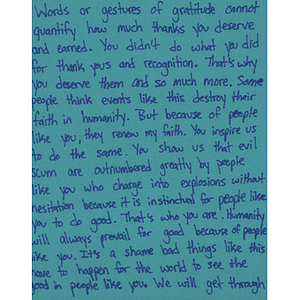 Words or gestures of gratitude cannot
quantify how much thanks you deserve
and earned. You didn't do what you did
for thank yous and recognition. That's why
you deserve them and so much more. Some
people think events like this destroy their
faith in humanity. But because of people
like you, they renew my faith. You inspire us
to do the same. You show us that evil
scum are outnumbered greatly by people
like you who charge into explosions without
hesitation because it is instinctual for people like
you to do good. That's who you are. Humanity
will always prevail for good because of people
like you. It's a shame bad things like this
have to happen for the world to see the
good in people like you. We will get through